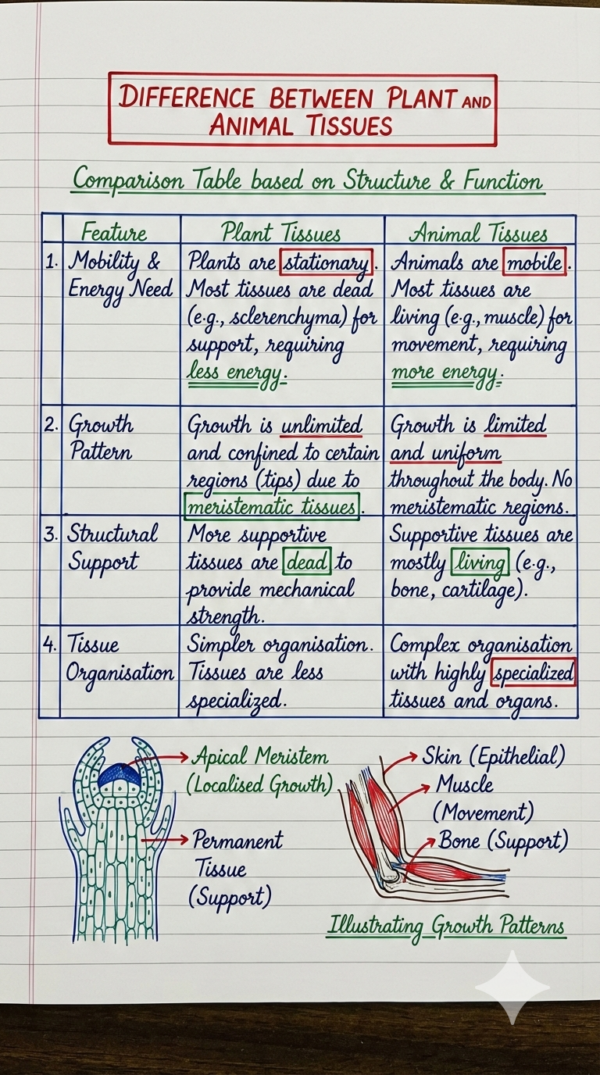 DIFFERENCE BETWEEN PLANT AND
ANIMAL TISSUES
Comparison Table based on Structure & Function
Feature
Plant Tissues
Animal Tissues
1. Mobility &
Energy Need
Plants are stationary.
Most tissues are dead
(e.g., sclerenchyma) for
support, requiring
less energy.
Animals are mobile.
Most tissues are
living (e.g., muscle) for
movement, requiring
more energy.
2. Growth
Pattern
Growth is unlimited
and confined to certain
regions (tips) due to
meristematic tissues.
Growth is limited
and uniform
throughout the body. No
meristematic regions.
3. Structural
Support
More supportive
tissues are dead to
provide mechanical
strength.
Supportive tissues are
mostly living (e.g.,
bone, cartilage).
4. Tissue
Organisation
Simpler organisation.
Tissues are less
specialized.
Complex organisation
with highly specialized
tissues and organs.
Apical Meristem
(Localised Growth)
Permanent
Tissue
(Support)
Skin (Epithelial)
Muscle
(Movement)
Bone (Support)
Illustrating Growth Patterns